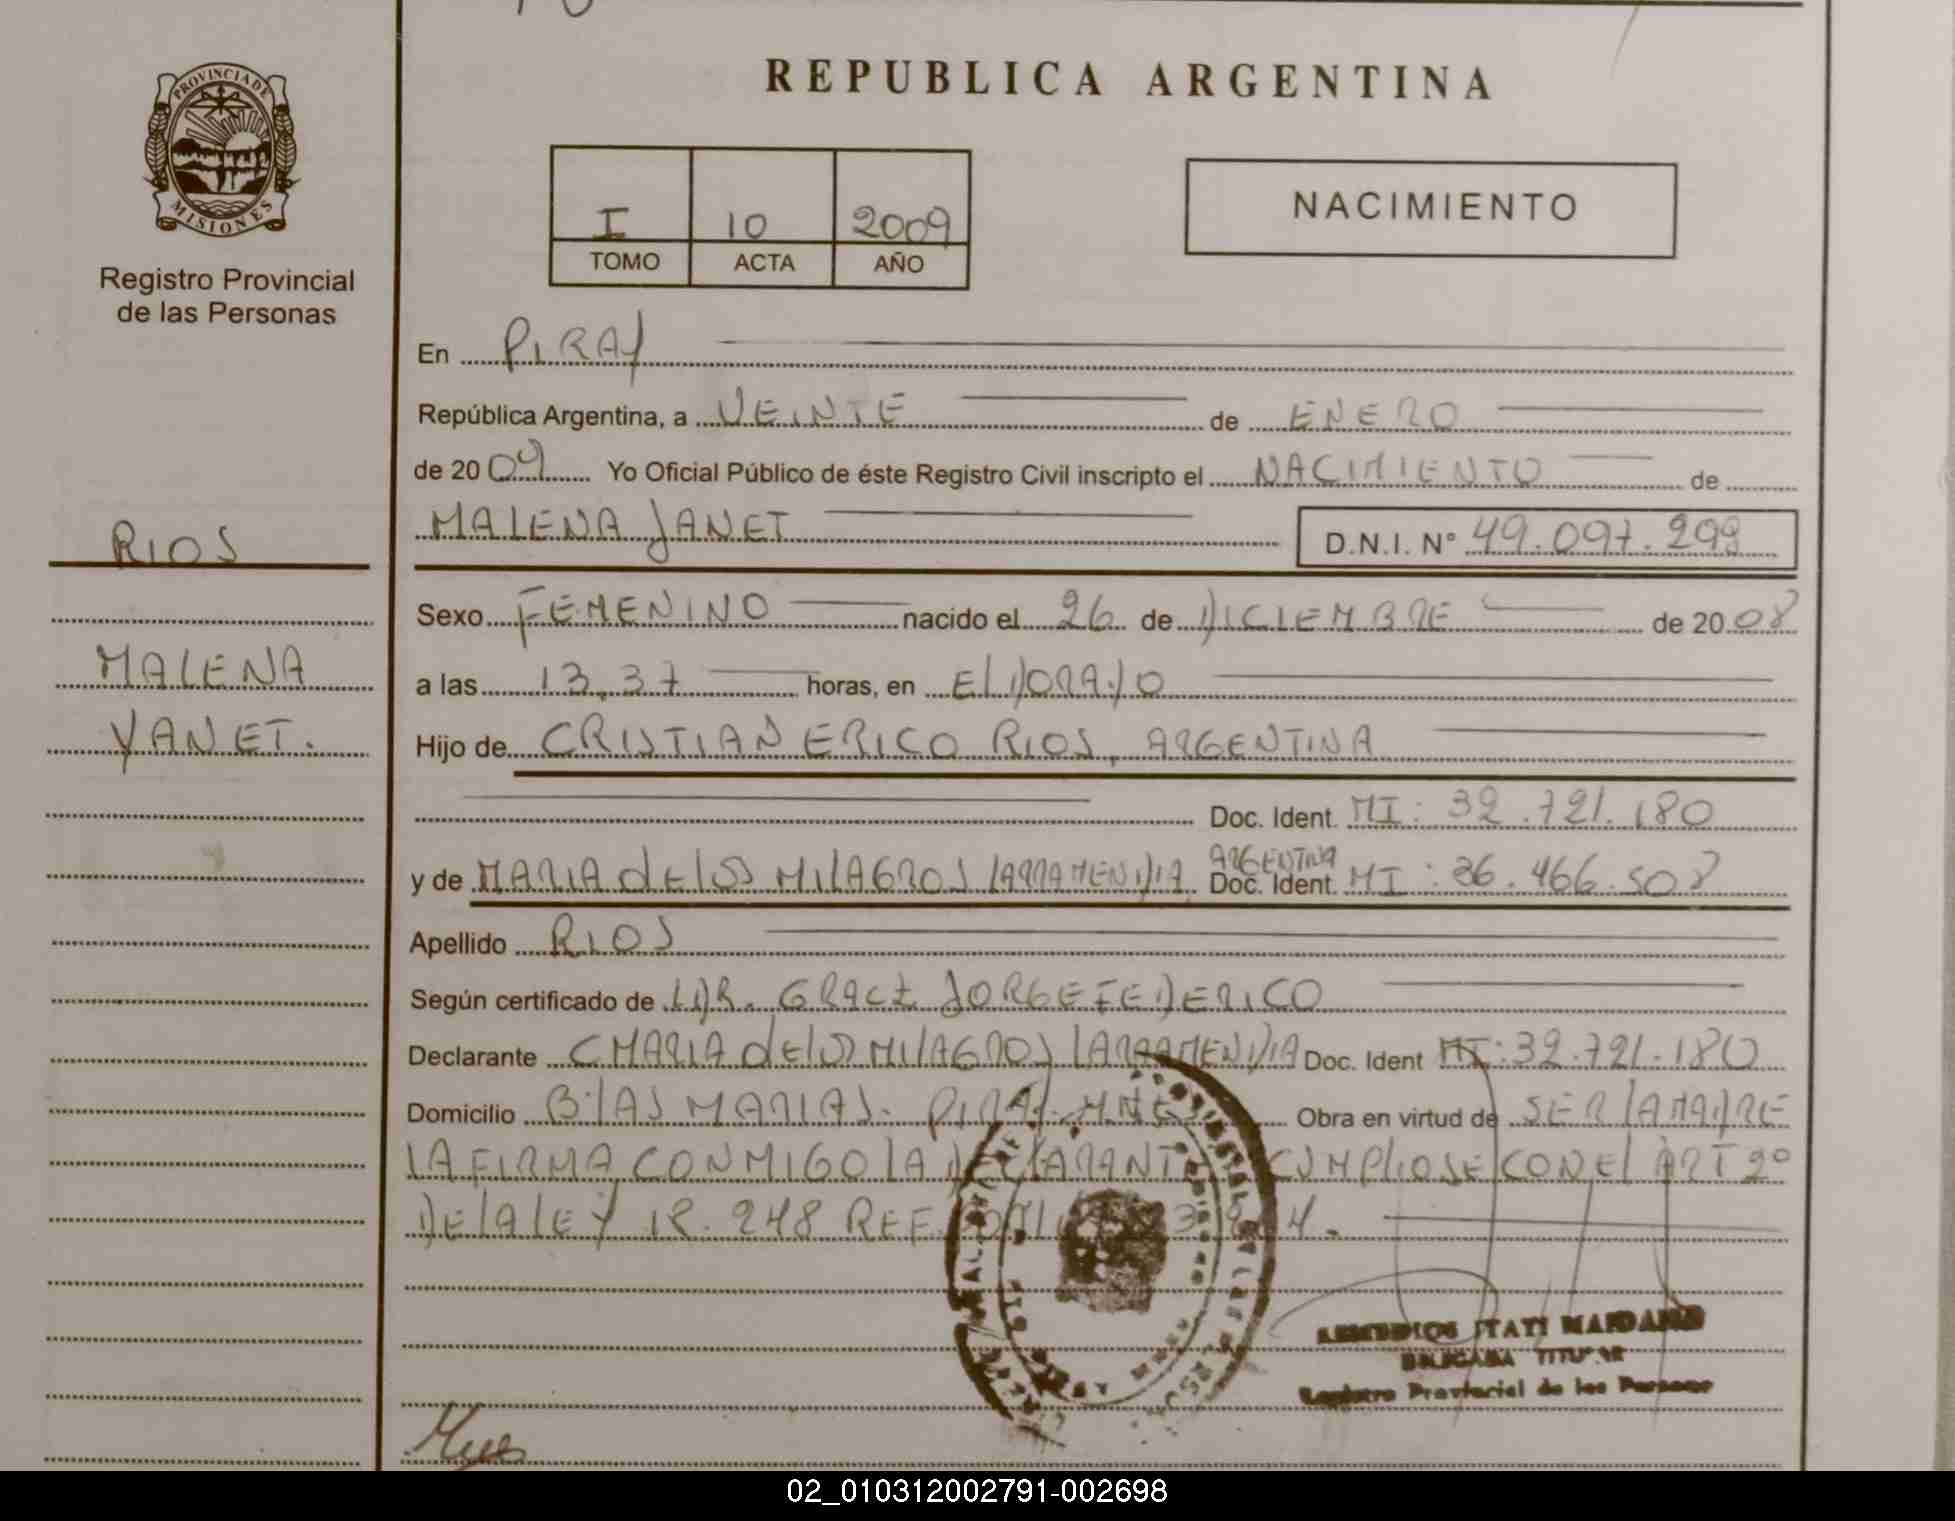 PROVINCIA DE
MISIONES
Registro Provincial
de las Personas
RIOS
MALENA
YANET.
REPUBLICA ARGENTINA
I 10 2009
TOMO ACTA AÑO
NACIMIENTO
En PIRAY
República Argentina, a VEINTE de ENERO
de 2009 Yo Oficial Público de éste Registro Civil inscripto el NACIMIENTO de
MALENA JANET D.N.I. N° 49.097.299
Sexo FEMENINO nacido el 26 de DICIEMBRE de 2008
a las 13.37 horas, en ElDORADO
Hijo de CRISTIAN ERICO RIOS, ARGENTINA
Doc. Ident. MI: 32.721.180
y de MARIA dE lOS MIlAGROS lARRAMENDIA ARGENTINA Doc. Ident. MI: 36.466.508
Apellido RIOS
Según certificado de DR. JORGE FEDERICO
Declarante MARIA dE lOS MIlAGROS lARRAMENDIA Doc. Ident MI: 32.721.180
Domicilio B: lAS MARIAS. PIRAY. MNES Obra en virtud de SER lA MADRE
lA FIRMA CONMIGO lA DEClARANTE CUMPlIOSE CON El ART 2º
DE lA lEY 18.248 REF.
REMEDIOS ITATI MAIDANA
DELEGADA TITULAR
Registro Provincial de las Personas
02_010312002791-002698